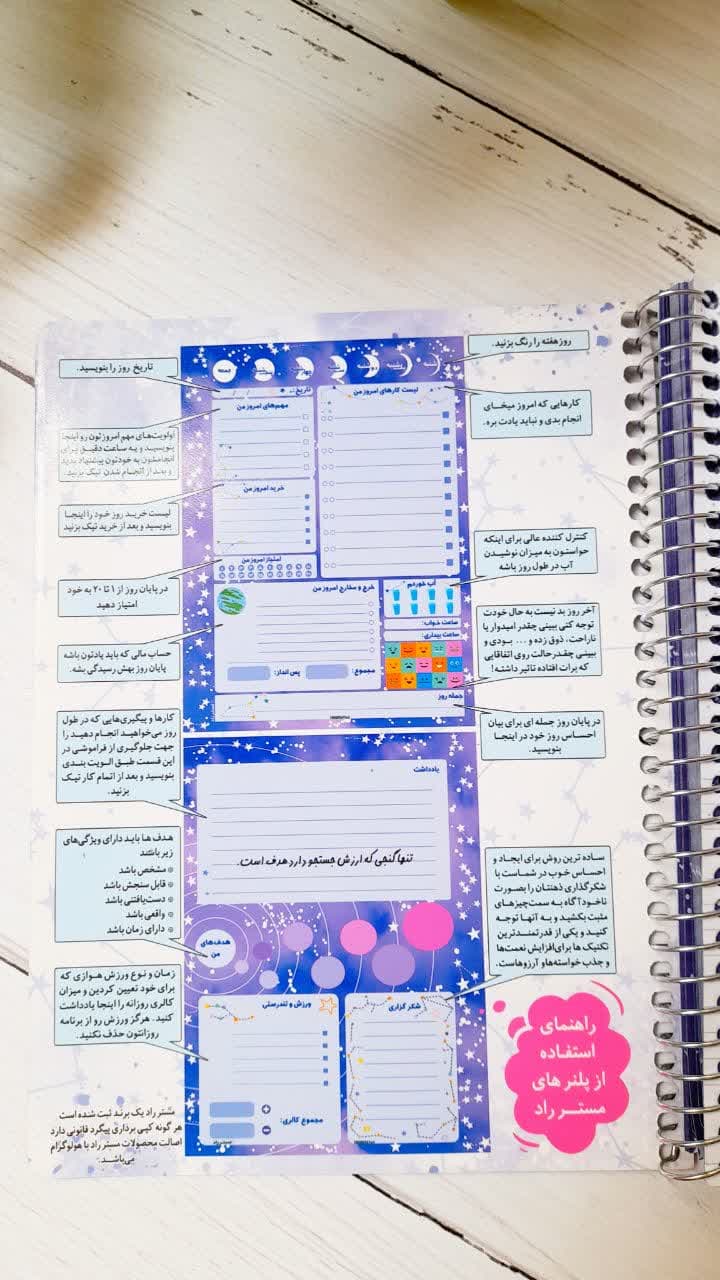 روز هفته را رنگ بزنید.
تاریخ روز را بنویسید.
جمعه
تاریخ:
لیست کارهای امروز من
مهم‌های امروز من
کارهایی که امروز میخــای
انجام بدی و نباید یادت بره.
اولویت‌های مهم امروزتون رو اینجا
بنویسیــد و یــه ساعت دقیــق بــرای
انجامشون به خودتون پیشنهاد بدید
و بعد از انجام شدن تیک بزنید.
خرید امروز من
لیست خریــد روز خــود را اینجــا
بنویسید و بعد از خرید تیک بزنید
کنترل کننده عالی برای اینکه
حواستون به میزان نوشیــدن
آب در طول روز باشه
امتیاز امروز من
در پایان روز از ۱ تا ۲۰ به خود
امتیاز دهید
آب خوردم
خرج و مخارج امروز من
ساعت خواب:
ساعت بیداری:
آخر روز بد نیست به حال خودت
توجه کنی ببینی چقدر امیدوار یا
ناراحت، ذوق زده و ... بــودی و
ببینی چقدر حالت روی اتفاقایی
که برات افتاده تاثیر داشته!
حساب مالی که باید یادتون باشه
پایان روز بهش رسیدگی بشه.
مجموع:
پس انداز:
جمله روز
در پایان روز جمله ای برای بیان
احســاس روز خود در اینجــا
بنویسید.
کارها و پیگیری‌هایی که در طول
روز می‌خواهیــد انجــام دهیــد را
جهت جلوگیری از فراموشی در
این قسمت طبق الویت بنــدی
بنویسید و بعد از اتمام کار تیک
بزنید.
یادداشت
تنها گنجی که ارزش جستجو دارد هدف است.
هدف ها بایــد دارای ویژگی‌های
زیر باشند
مشخص باشد
قابل سنجش باشد
دست‌یافتنی باشد
واقعی باشد
دارای زمان باشد
هدف‌های
من
ســاده ترین روش برای ایجــاد و
احســاس خوب در شمــاست با
شکرگذاری ذهنتان را بصورت
ناخودآگاه به سمت چیزهای
مثبت بکشید و به آنها توجه
کنیــد و یکی از قدرتمنــدترین
تکنیک ها برای افزایش نعمت‌ها
و جذب خواسته‌ها و آرزوهاست.
زمــان و نوع ورزش هــوازی که
برای خود تعیین کردین و میزان
کالری روزانه را اینجا یادداشت
کنید. هرگز ورزش رو از برنامه
روزانتون حذف نکنید.
ورزش و تندرستی
شکر گزاری
مجموع کالری:
راهنمای
استفاده
از پلنر های
مستــر راد
مستر راد یک برنــد ثبت شده است
هر گونه کپی برداری پیگرد قانونی دارد
اصالت محصولات مستر راد با هولوگرام
می‌باشــد.